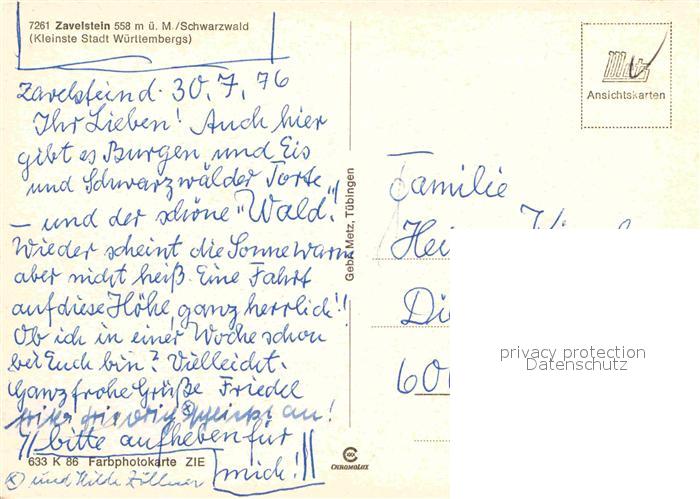 7261 Zavelstein 558 m ü. M./Schwarzwald
(Kleinste Stadt Württembergs)
Zavelstein d. 30.7.76
Ihr Lieben! Auch hier
gibt es Burgen und Eis
und Schwarzwälder Torte
– und der schöne "Wald"!
Wieder scheint die Sonne warm
aber nicht heiß. Eine Fahrt
auf diese Höhe, ganz herrlich!!
Ob ich in einer Woche schon
bei Euch bin? Vielleicht.
Ganz frohe Grüße Friedel
an!
bitte aufheben für
mich!
und Hilde Zöllner
633 K 86 Farbphotokarte ZIE
Gebr. Metz, Tübingen
CHROMOLUX
Metz
Ansichtskarten
Familie
privacy protection
Datenschutz